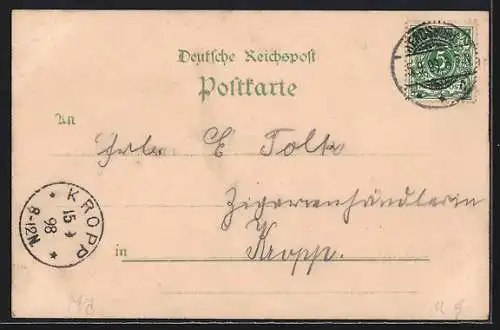 Deutsche Reichspost
Postkarte
An
Frln. E Tolk
Zigarrenhändlerin
in Kropp.
5
KROPP
15 4
98
8-12N